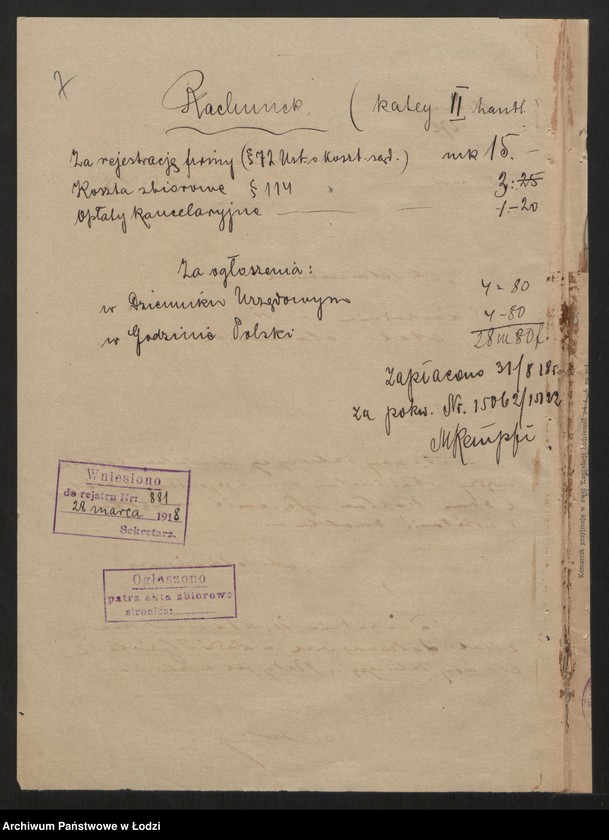 7
Rachunek. (kateg II handl.)
Za rejestrację firmy (§ 72 Ust. o koszt. sąd.) mk 15. –
Koszta zbiorowe § 114 3:25
Opłaty kancelaryjne — — 1.–20
Za ogłoszenia:
w Dzienniku Urzędowym 4–80
w Godzinie Polski 4–80
28 m 80 f.
Zapłacono 31/8 18 r.
za pokw. Nr. 15062/15122
Wniesiono
do rejstru Nr: 881
28 marca 1918
Sekretarz.
Ogłoszono
patrz akta zbiorowe
stronica:
Archiwum Państwowe w Łodzi